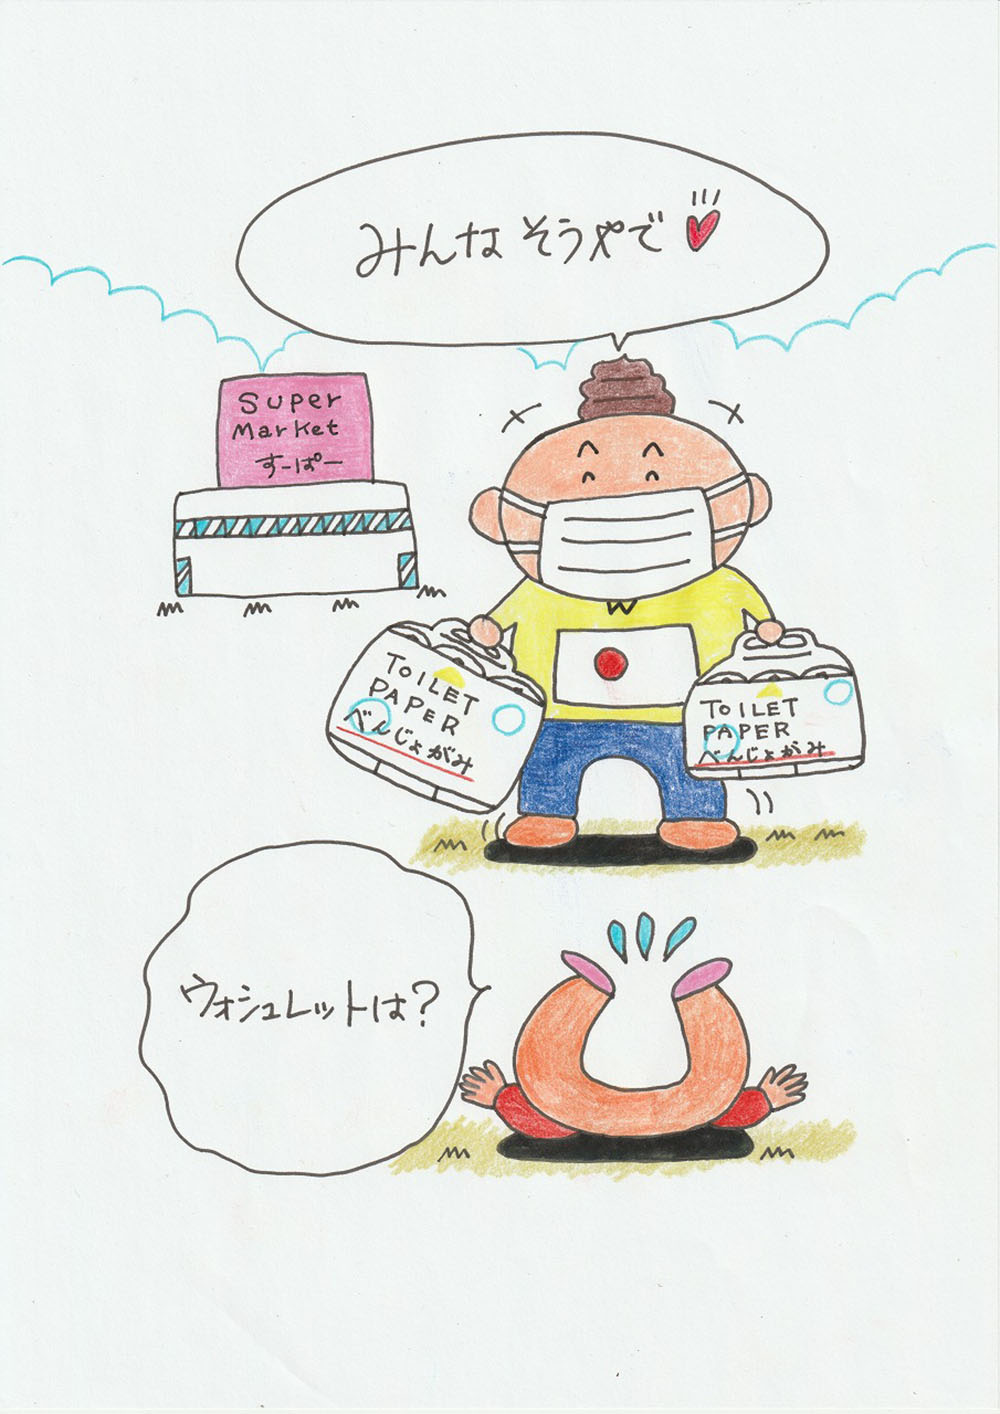 みんなそうやで
Super
Market
すーぱー
TOILET
PAPER
べんじょがみ
TOILET
PAPER
べんじょがみ
ウォシュレットは?